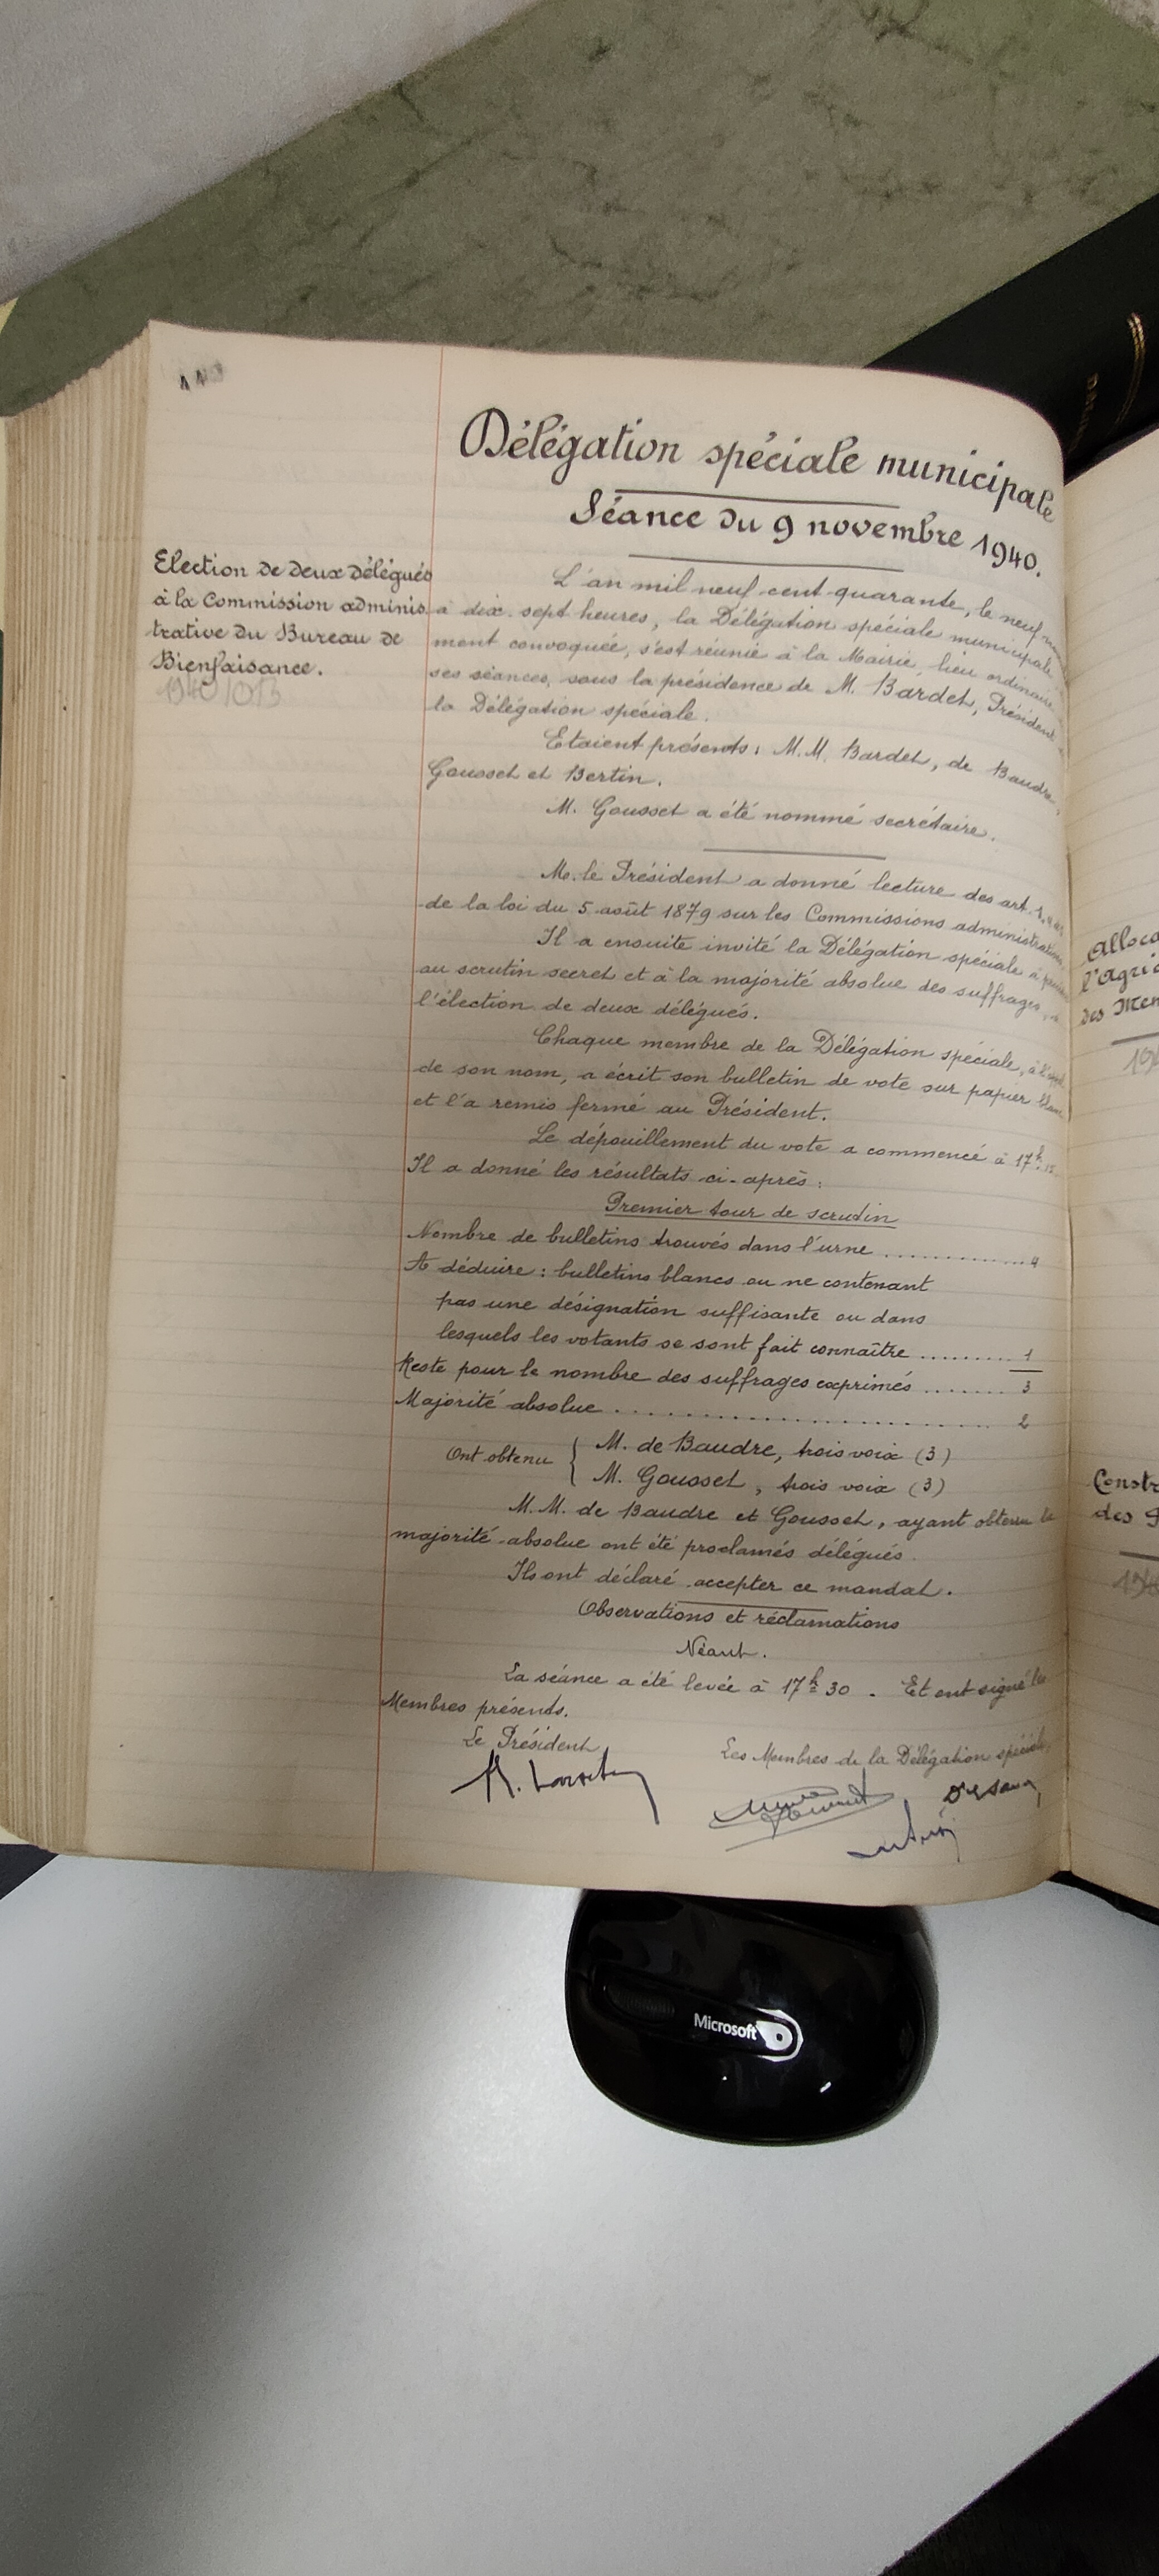 Délégation spéciale municipale
Séance du 9 novembre 1940.
Election de deux délégués
à la Commission adminis
trative du Bureau de
Bienfaisance.
L'an mil neuf cent quarante, le neuf
à dix-sept heures, la Délégation spéciale municipale
ment convoquée, s'est réunie à la Mairie, lieu ordinaire
ses séances, sous la présidence de M. Bardet, Président
la Délégation spéciale.
Etaient présents : M.M. Bardet, de Baudre,
Gousset et Bertin.
M. Gousset a été nommé secrétaire.
M. le Président a donné lecture des art.
de la loi du 5 août 1879 sur les Commissions administratives
Il a ensuite invité la Délégation spéciale à
au scrutin secret et à la majorité absolue des suffrages,
l'élection de deux délégués.
Chaque membre de la Délégation spéciale, à l'appel
de son nom, a écrit son bulletin de vote sur papier blanc
et l'a remis fermé au Président.
Le dépouillement du vote a commencé à 17h
Il a donné les résultats ci-après :
Premier tour de scrutin
Nombre de bulletins trouvés dans l'urne .............. 4
A déduire : bulletins blancs ou ne contenant
pas une désignation suffisante ou dans
lesquels les votants se sont fait connaître ......... 1
Reste pour le nombre des suffrages exprimés ....... 3
Majorité absolue .......................... 2
Ont obtenu { M. de Baudre, trois voix (3)
M. Gousset, trois voix (3)
M.M. de Baudre et Gousset, ayant obtenu la
majorité absolue ont été proclamés délégués.
Ils ont déclaré accepter ce mandat.
Observations et réclamations
Néant.
La séance a été levée à 17h 30. Et ont signé les
Membres présents.
Le Président
Les Membres de la Délégation spéciale,
Alloca
l'Agric
des Mem
Constr
des
Microsoft